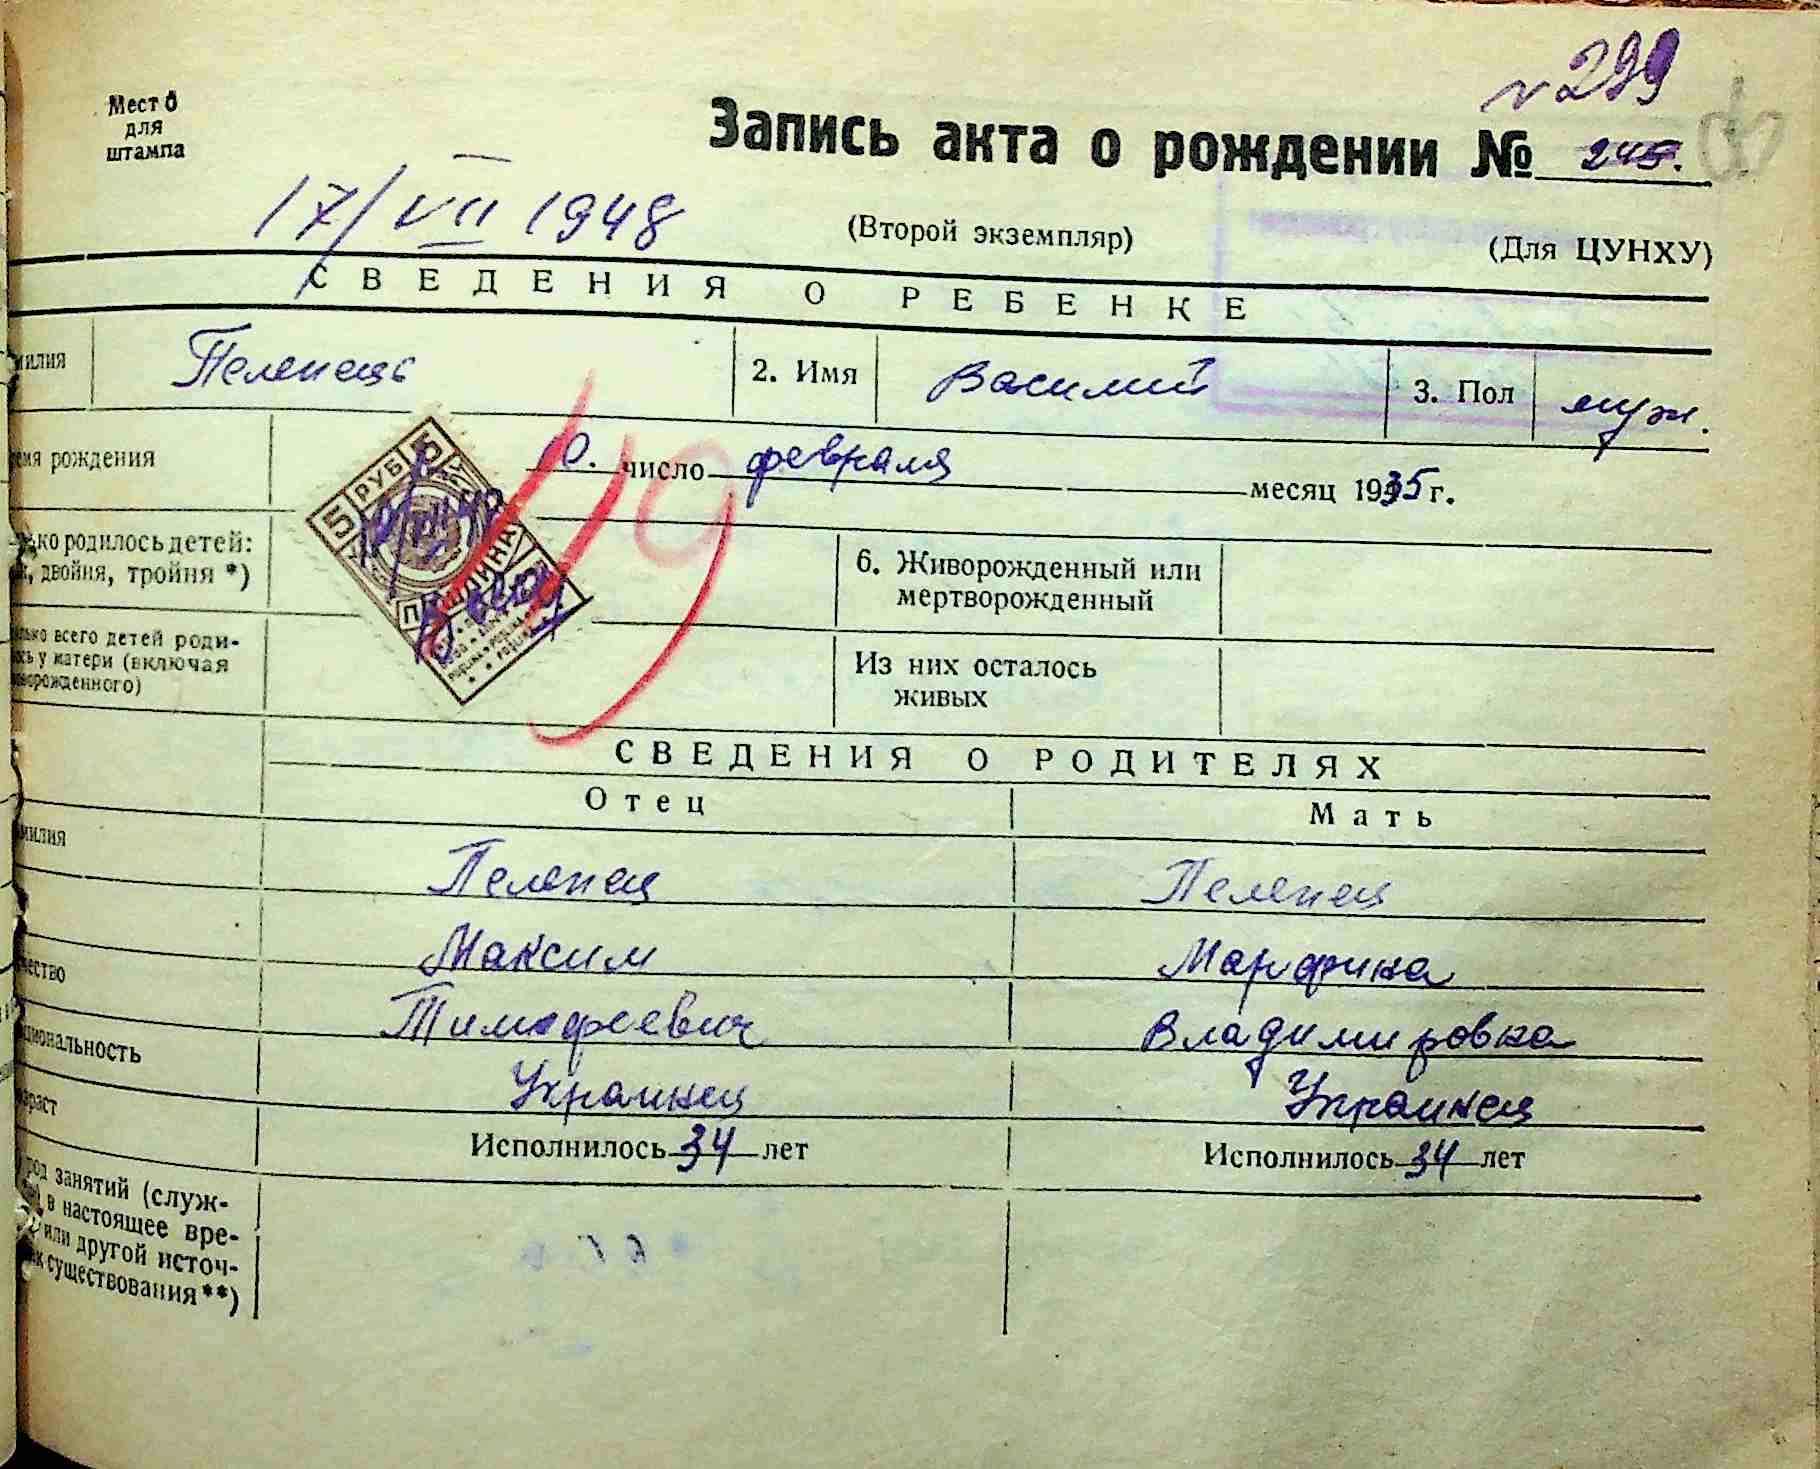 № 299
Место
для
штампа
Запись акта о рождении № 245.
17/VII 1948
(Второй экземпляр)
(Для ЦУНХУ)
СВЕДЕНИЯ О РЕБЕНКЕ
милия Пеленець 2. Имя Василий 3. Пол муж.
емя рождения 10. число февраля месяц 1935 г.
5 РУБ 5
ПОШЛИНА
ко родилось детей:
двойня, тройня *)
6. Живорожденный или
мертворожденный
лько всего детей роди-
сь у матери (включая
ворожденного)
Из них осталось
живых
19
СВЕДЕНИЯ О РОДИТЕЛЯХ
Отец Мать
милия Пеленец Пеленец
Максим Марфина
чество Тимофеевич Владимировна
циональность Украинец Украинец
зраст Исполнилось 34 лет Исполнилось 34 лет
род занятий (служ-
в настоящее вре-
или другой источ-
к существования **)